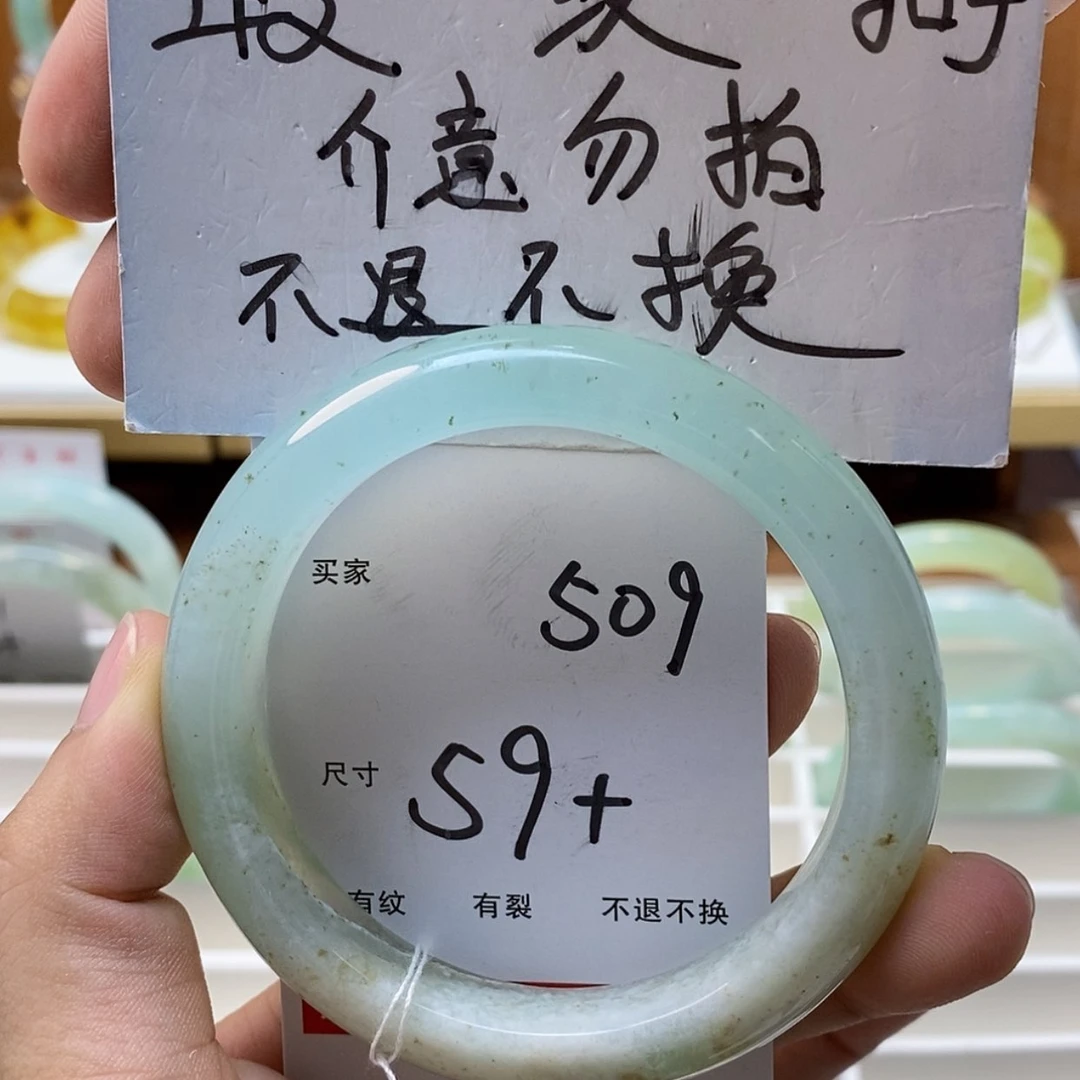 介意勿拍
不退不换
买家 509
尺寸 59+
有纹 有裂 不退不换